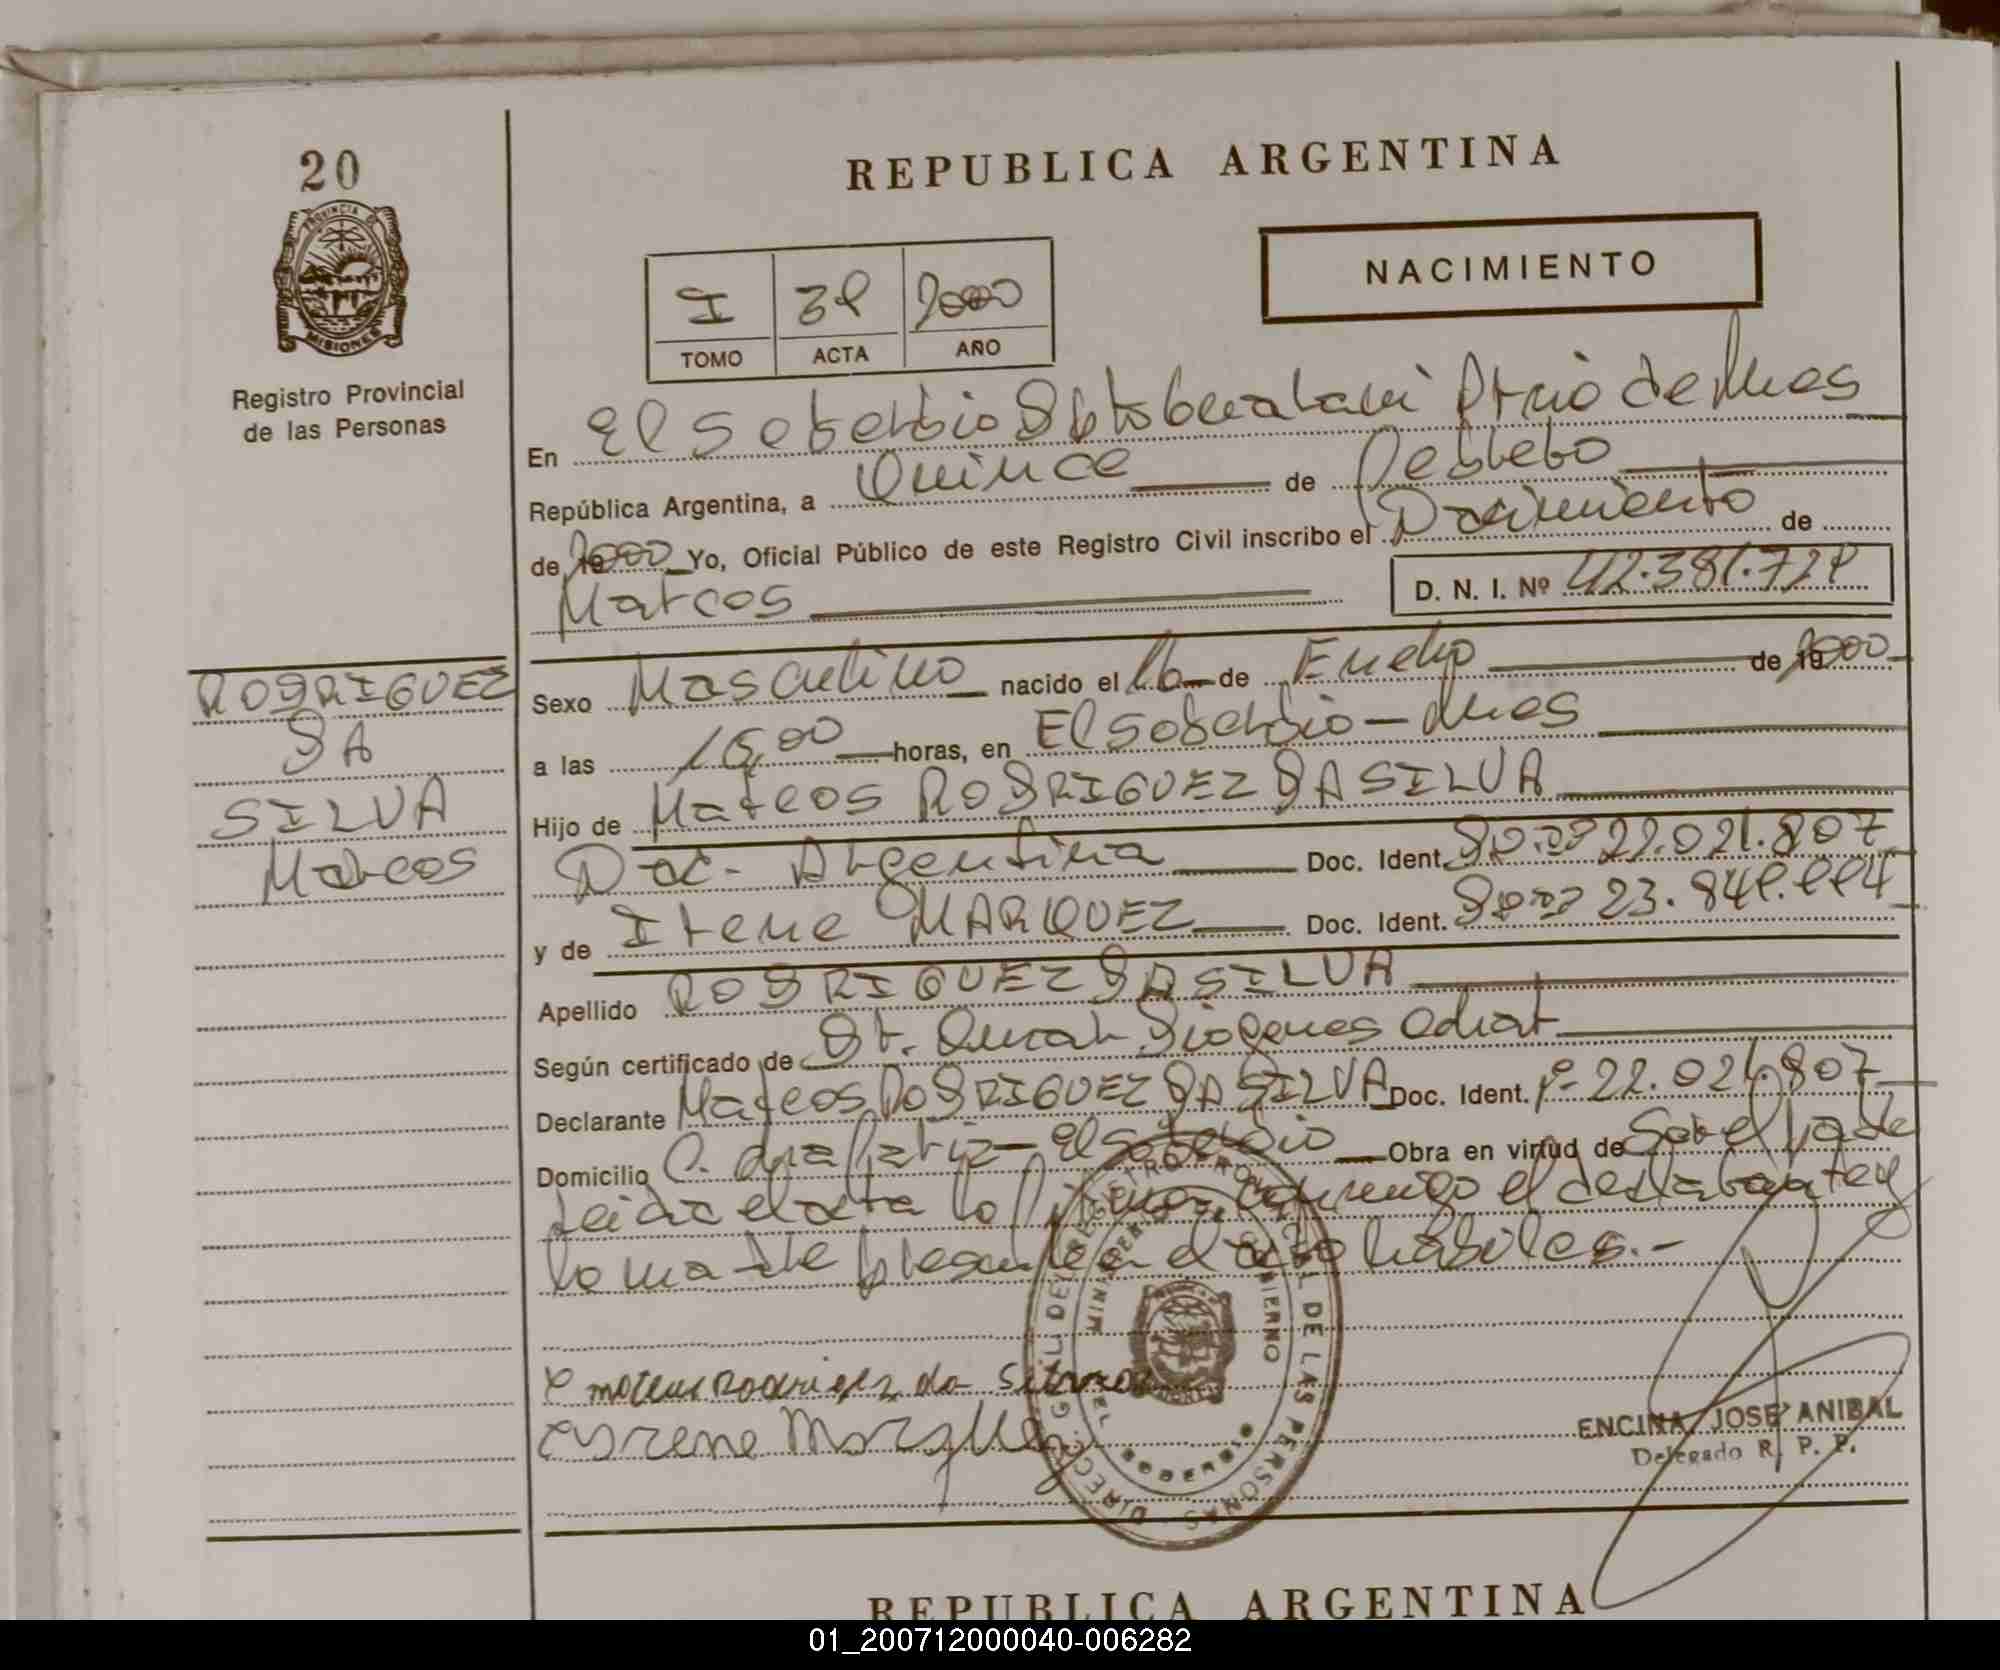 20
PROVINCIA DE
MISIONES
Registro Provincial
de las Personas
REPUBLICA ARGENTINA
NACIMIENTO
I 39 2000
TOMO ACTA AÑO
En El Soberbio Dpto Guarani Prcio de Mnes
República Argentina, a Quince de Febrero
de 2000 Yo, Oficial Público de este Registro Civil inscribo el Nacimiento de
Marcos D. N. I. Nº 42.381.729
Sexo Masculino nacido el 16 de Enero de 2000
a las 15,00 horas, en El Soberbio - Mnes
Hijo de Marcos RODRIGUEZ DA SILVA
Nac. Argentina Doc. Ident. 22.021.807
y de Irene MARQUEZ Doc. Ident. 23.849.994
Apellido RODRIGUEZ DA SILVA
Según certificado de Dr. Diogenes
Declarante Marcos RODRIGUEZ DA SILVA Doc. Ident. Nº 22.021.807
Domicilio C. El Soberbio Obra en virtud de
Leida el acta lo firma, conmigo el declarante y
la madre presente en el acto
RODRIGUEZ
DA
SILVA
Marcos
Rodriguez da Silva
Irene Marquez
ENCINA, JOSE ANIBAL
Delegado R. P. P.
DIRECC. GRAL. DEL REGISTRO PROVINCIAL DE LAS PERSONAS
REPUBLICA ARGENTINA
01_200712000040-006282